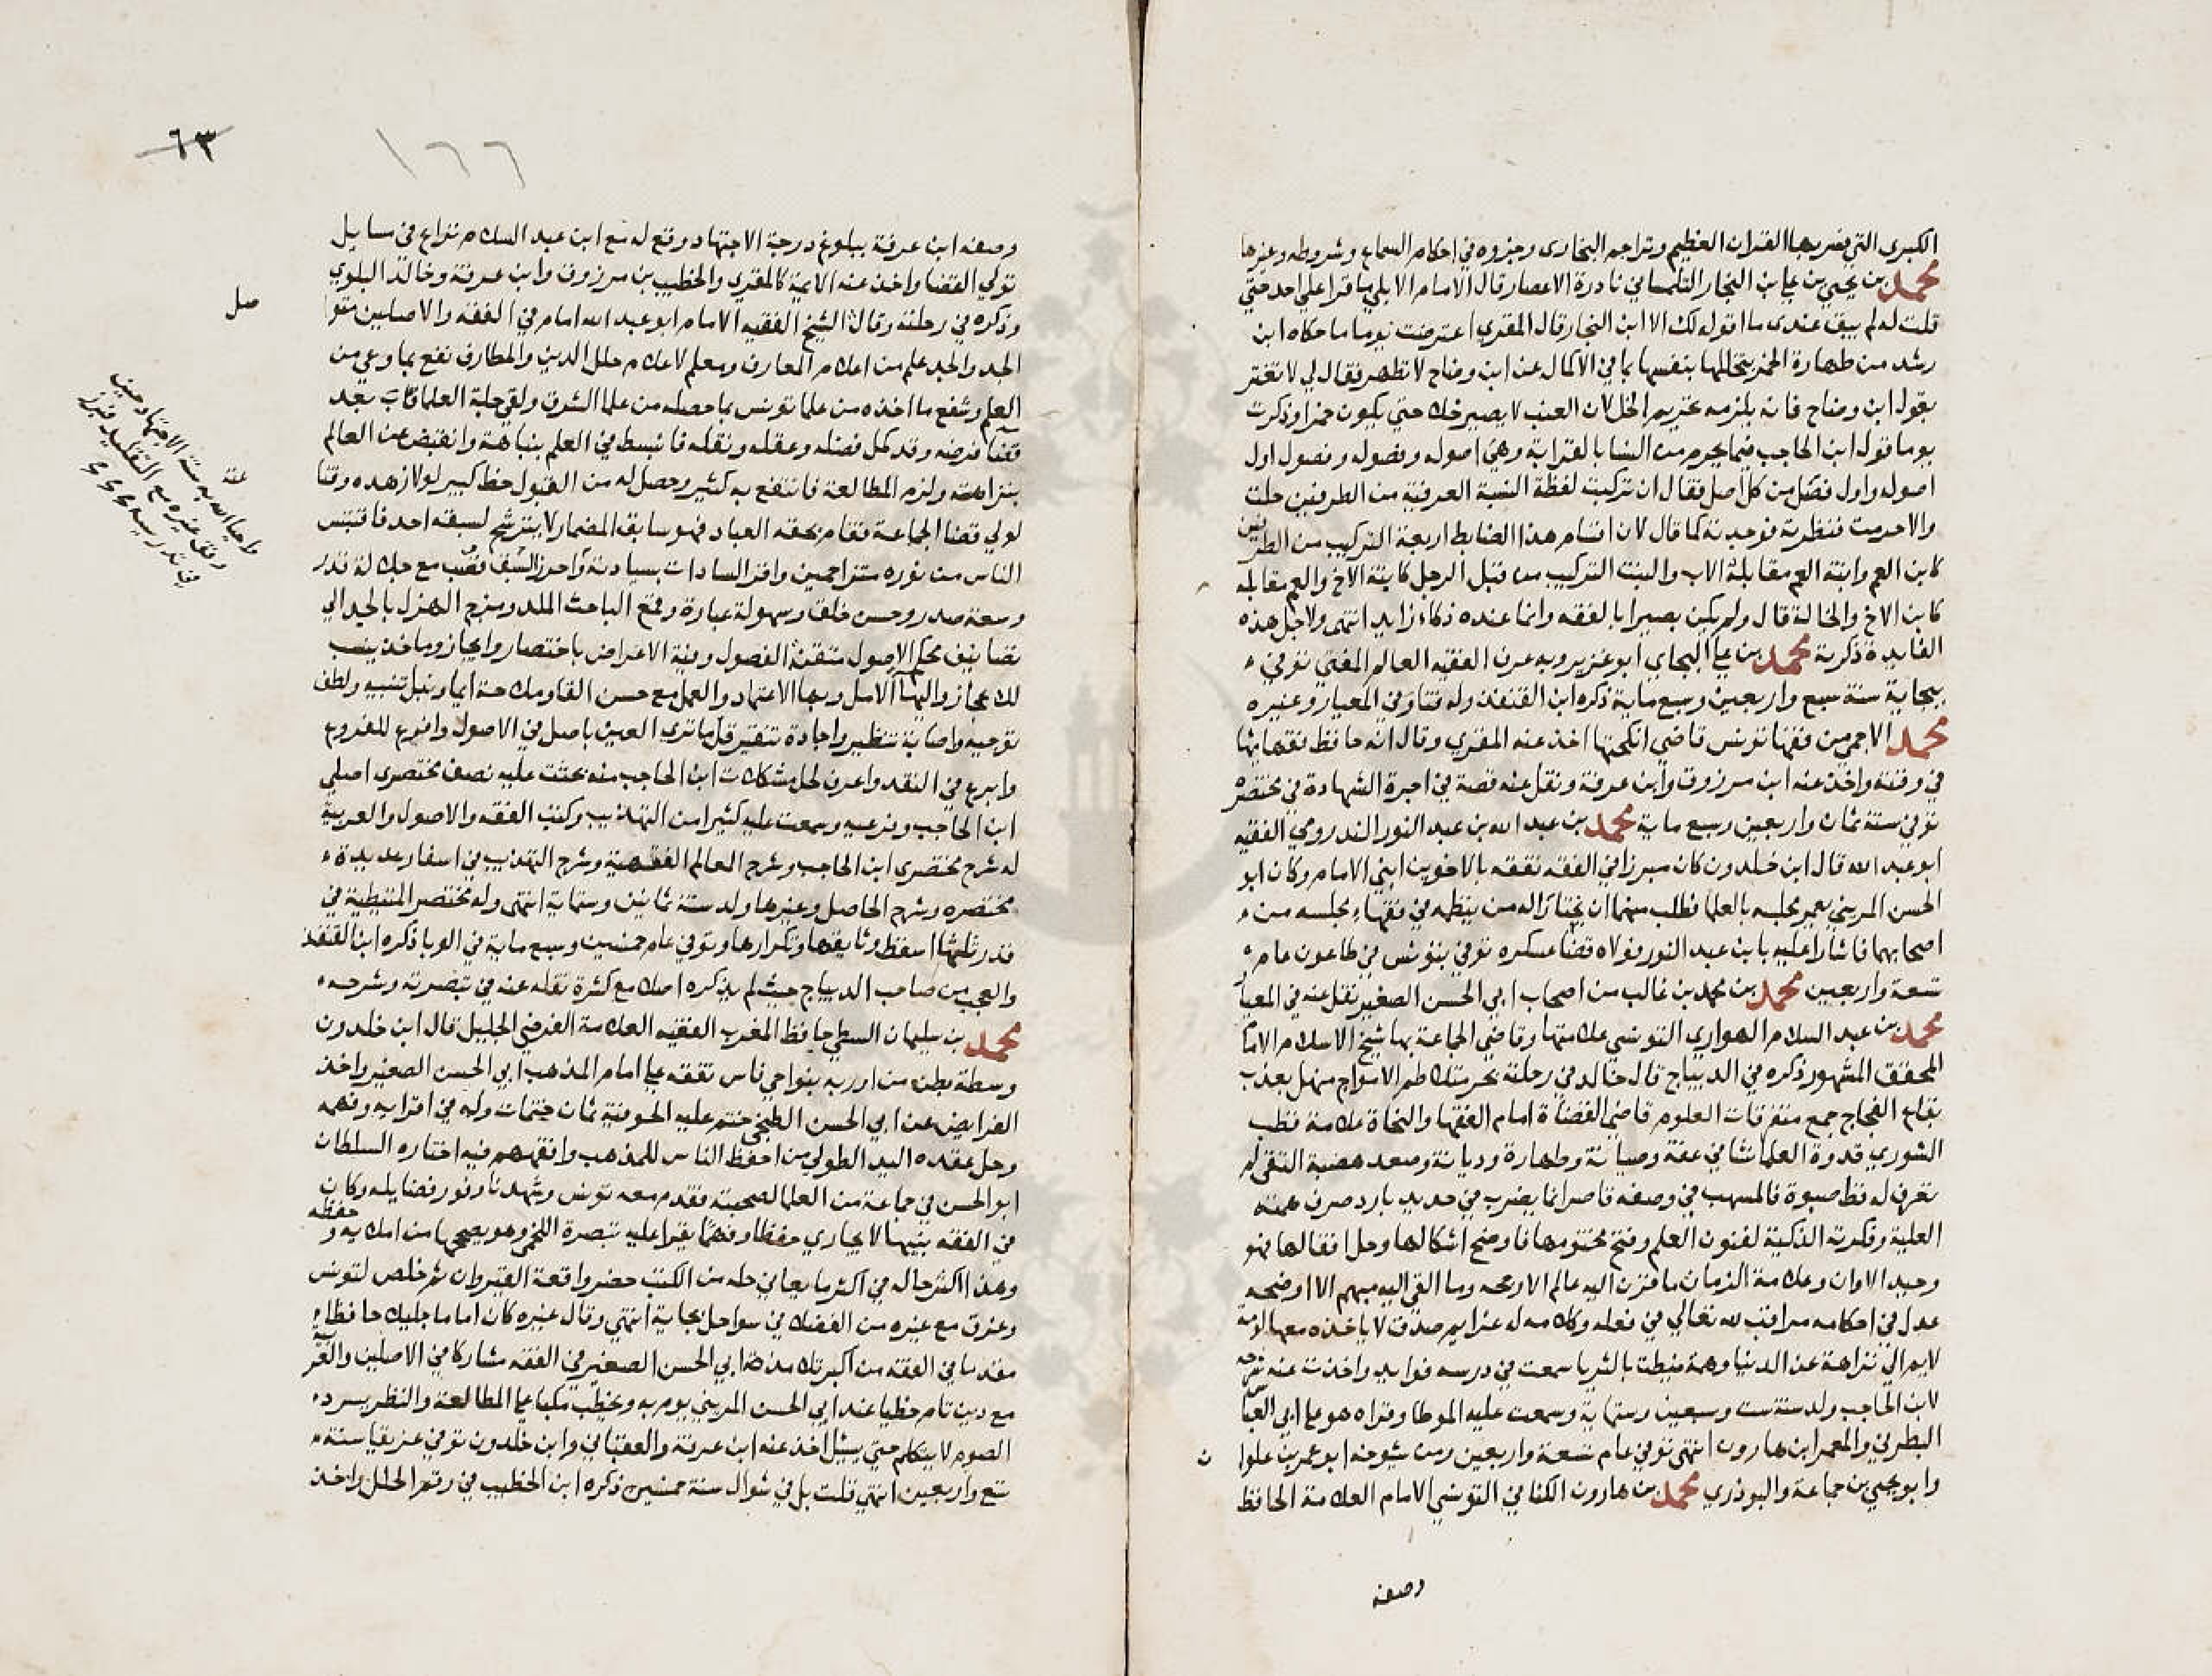 الكبرى التي يضربها القران العظيم وتراجم البخارى وجزوه في احكام السماع وشروطه وغيرها
محمد بن يحيي بن علي بن النجار التلمساني نادرة الاعصار قال الامام الابلي ما قرا علي احد حتي
قلت له لم يبق عندى ما اقوله لك الا ابن النجار قال المقري اعترضت يوما ما حكاه ابن
رشد من طهارة الخمر بتخللها بنفسها بما في الاكمال عن ابن وضاح لا تطهر فقال لي لا تغتر
بقول ابن وضاح فانه يلزمه تحريم الخل لان العنب لا يصير خلا حتي يكون خمرا وذكرت
يوما قول ابن الحاجب فيما يحرم من النسا بالقرابة وهي اصوله وفصوله وفصول اول
اصوله واول فصل من كل اصل فقال ان تركبت لفظة النسبة العرفية من الطرفين حلت
والا حرمت فنظرته فوجدته كما قال لان اقسام هذا الضابط اربعة التركيب من الطرفين
كابن العم وابنة العم مقابله الاب والبنت التركيب من قبل الرجل كابنة الاخ والعم مقابله
كابن الاخ والخالة قال ولم يكن بصيرا بالفقه وانما عنده ذكاء زايد انتهى ولاجل هذه
الفايدة ذكرته محمد بن علي البجاي ابو عزيز وبه عرف الفقيه العالم المفتي توفي
ببجاية سنة سبع واربعين وسبع ماية ذكره ابن القنفذ وله فتاوي في المعيار وغيره
محمد الاجمي من فقها تونس قاضي انكحتها اخذ عنه المقري وقال انه حافظ فقهايها
في وقته واخذ عنه ابن مرزوق وابن عرفة ونقل عنه قصة في اجرة الشهادة في مختصره
توفي سنة ثمان واربعين وسبع ماية محمد بن عبد الله بن عبد النور الندرومي الفقيه
ابو عبد الله قال ابن خلدون كان مبرزا في الفقه تفقه بالاخوين ابني الامام وكان ابو
الحسن المريني يعمر مجلسه بالعلما فطلب منهما ان يختارا له من ينظمه في فقهاء مجلسه من
اصحابهما فاشارا عليه بابن عبد النور فولاه قضا عسكره توفي بتونس في طاعون عام
تسعة واربعين محمد بن محمد بن غالب من اصحاب ابي الحسن الصغير نقل عنه في المعيار
محمد بن عبد السلام الهواري التونسي علامتها وقاضي الجماعة بها شيخ الاسلام الامام
المحقق المشهور ذكره في الديباج قال خالد في رحلته بحر متلاطم الامواج منهل يعذب
بقاع الفجاج جمع متفرقات العلوم قاضي القضاة امام الفقها والنحاة علامة قطب
الشورى قدوة العلما شا في عفة وصيانة وطهارة وديانة وصعد هضبة التقي لم
تعرف له قط صبوة فالمسهب في وصفه قاصر انما يضرب في حديد بارد صرف همته
العلية وفكرته الذكية لفنون العلم وفتح مختومها فاوضح اشكالها وحل اقفالها فهو
وحيد الاوان وعلامة الزمان ما قرن اليه عالم الا رجحه وما القي اليه مبهم الا اوضحه
عدل في احكامه مراقب لله تعالي في فعله وكلامه له عزايم صدق لا ياخذه معها لومة
لايم الي نزاهة عن الدنيا وهمة نيطت بالثريا سمعت في درسه فوايد واخذت عنه شرحه
لابن الحاجب ولد سنة ست وسبعين وستماية وسمعت عليه الموطا وقراه هو علي ابي العباس
البطرني والمعمر ابن هارون انتهى توفي عام تسعة واربعين ومن شيوخه ابو عمر بن علوان
وابو يحيي بن جماعة والبوذري محمد بن هارون الكناني التونسي الامام العلامة الحافظ
وصفه
٦٣
١٦٦
وصفه ابن عرفة ببلوغ درجة الاجتهاد وقع له مع ابن عبد السلام نزاع في مسايل
تولي القضا واخذ عنه الايمة كالمقري والخطيب بن مرزوق وابن عرفة وخالد البلوي
وذكره في رحلته وقال الشيخ الفقيه الامام ابو عبد الله امام في الفقه والاصلين متوا
الجد والجد علم من اعلام المعارف ومعلم لاعلام حلل الدين والمطارف نفع بما وعي من
العلم وشفع ما اخذه من علما تونس بما حصله من علما الشرق ولقي جلة العلما قاب بعد
قضا فرضه وقد كمل فضله وعقله ونقله فانبسط في العلم بنباهته وانقبض عن العالم
بنزاهته ولزم المطالعة فانتفع به كثير وحصل له من القبول حظ كبير لولا زهده وقتا
لولي قضا الجماعة فقام بحقه العباد فهو سابق المضمار لا يترشح لسبقه احد فاقتبس
الناس من نوره متزاحمين واقر السادات بسيادته واحرز السبق نصب مع جلالة قدر
وسعة صدر وحسن خلق وسهولة عبارة وقمع الباحث الملد ومزج الهزل بالجد الي
تصانيف محكم الاصول متقنة الفصول وفية الاغراض باختصار وايجاز وماخذ ينسب
لك عجاز واليها الامل وبها الاعتماد والعمل مع حسن القا وملاحة ايما ونبل تنبيه ولطف
توجيه واصابة تنظير واجادة تنقير قل ما تري العين باصل في الاصول وافرع للفروع
وابرع في النقد واعرف لحل مشكلات ابن الحاجب منه بحثت عليه نصف مختصري اصلي
ابن الحاجب وفرعيه وسمعت عليه كثيرا من التهذيب وكتب الفقه والاصول والعربية
له شرح مختصري ابن الحاجب وشرح المعالم الفقهية وشرح التهذيب في اسفار عديدة
مختصره وشرح الحاصل وغيرها ولد سنة ثمانين وستماية انتهى وله مختصر المتيطية في
قدر ثلثها اسقط وثايقها وتكرارها وتوفي عام خمسين وسبع ماية في الوبا ذكره ابن القنفذ
والعجب من صاحب الديباج حيث لم يذكره اصلا مع كثرة نقله عنه في تبصرته وشرحه
محمد بن سليمان السطي حافظ المغرب الفقيه العلامة الفرضي الجليل قال ابن خلدون
وسطة بطن من اوربه بنواحي فاس تفقه علي امام المذهب ابي الحسن الصغير واخذ
الفرايض عن ابي الحسن الطنجي ختم عليه الحوفية ثمان ختمات وله في اقرايه وفهمه
وحل عقده اليد الطولي من احفظ الناس للمذهب وافقههم فيه اختاره السلطان
ابو الحسن في جماعة من العلما لصحبته فقدم معه تونس وشهدنا وفور فضايله وكان
في الفقه بنيها لا يجاري حفظا وفهما يقرا عليه تبصرة اللخمي وهو يصححها من املايه وحفظه
وهذا اكثر حاله في اكثر ما يعاني حله من الكتب حضر واقعة القيروان ثم خلص لتونس
وغرق مع غيره من الفضلا في سواحل بجاية انتهي وقال غيره كان اماما جليلا حافظا
مقدما في الفقه من اكبر تلامذة ابي الحسن الصغير في الفقه مشاركا في الاصلين والعربية
مع دين تام حظيا عند ابي الحسن المريني يوم به ويخطب مكبا علي المطالعة والنظر يسرد
الصوم لا يتكلم حتي يسيل اخذ عنه ابن عرفة والعقباني وابن خلدون توفي غريقا سنة
تسع واربعين انتهي قلت بل في شوال سنة خمسين ذكره ابن الخطيب في رقم الحلل واخذ
صل
عنه
واحيا الله به سنة الاجتهاد حين
وقف غيره مع التقليد فبرز
في تدريسه